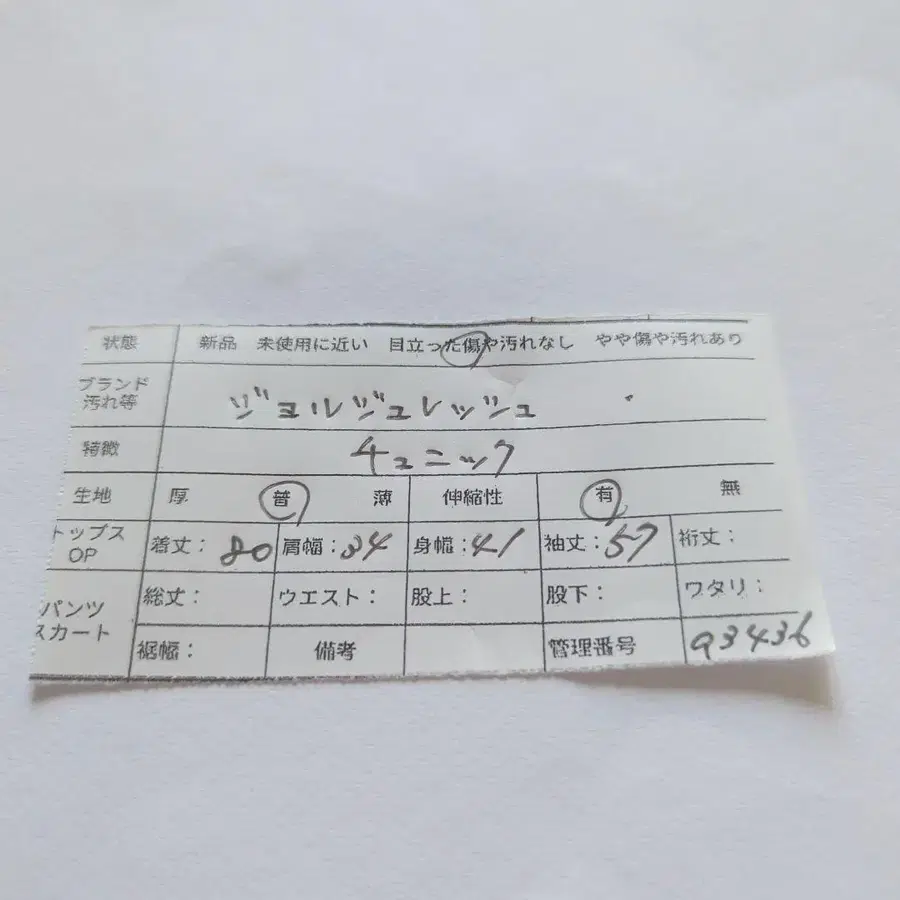 状態 新品 未使用に近い 目立った傷や汚れなし やや傷や汚れあり
ブランド
汚れ等 ジョルジュレッシュ
特徴 チュニック
生地 厚 普 薄 伸縮性 有 無
トップス
OP 着丈：80 肩幅：34 身幅：41 袖丈：57 裄丈：
パンツ
スカート 総丈： ウエスト： 股上： 股下： ワタリ：
裾幅： 備考 管理番号 93436